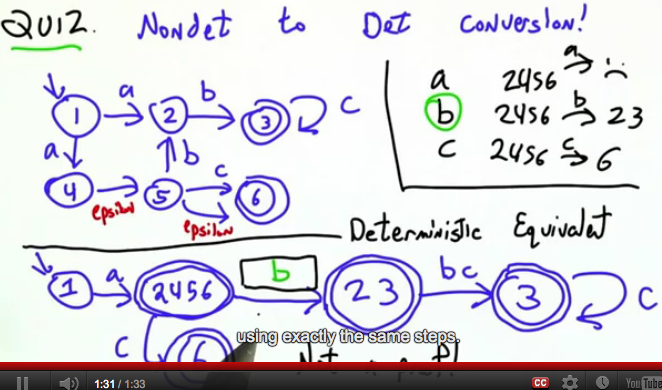 QUIZ. Nondet to Det Conversion!
1 a 2 b 3 c
a b
4 epsilon 5 c 6
epsilon
a 2456 a
b 2456 b 23
c 2456 c 6
Deterministic Equivalent
1 a 2456 b 23 bc 3 c
c 6
using exactly the same steps.
1:31 / 1:33
CC
You